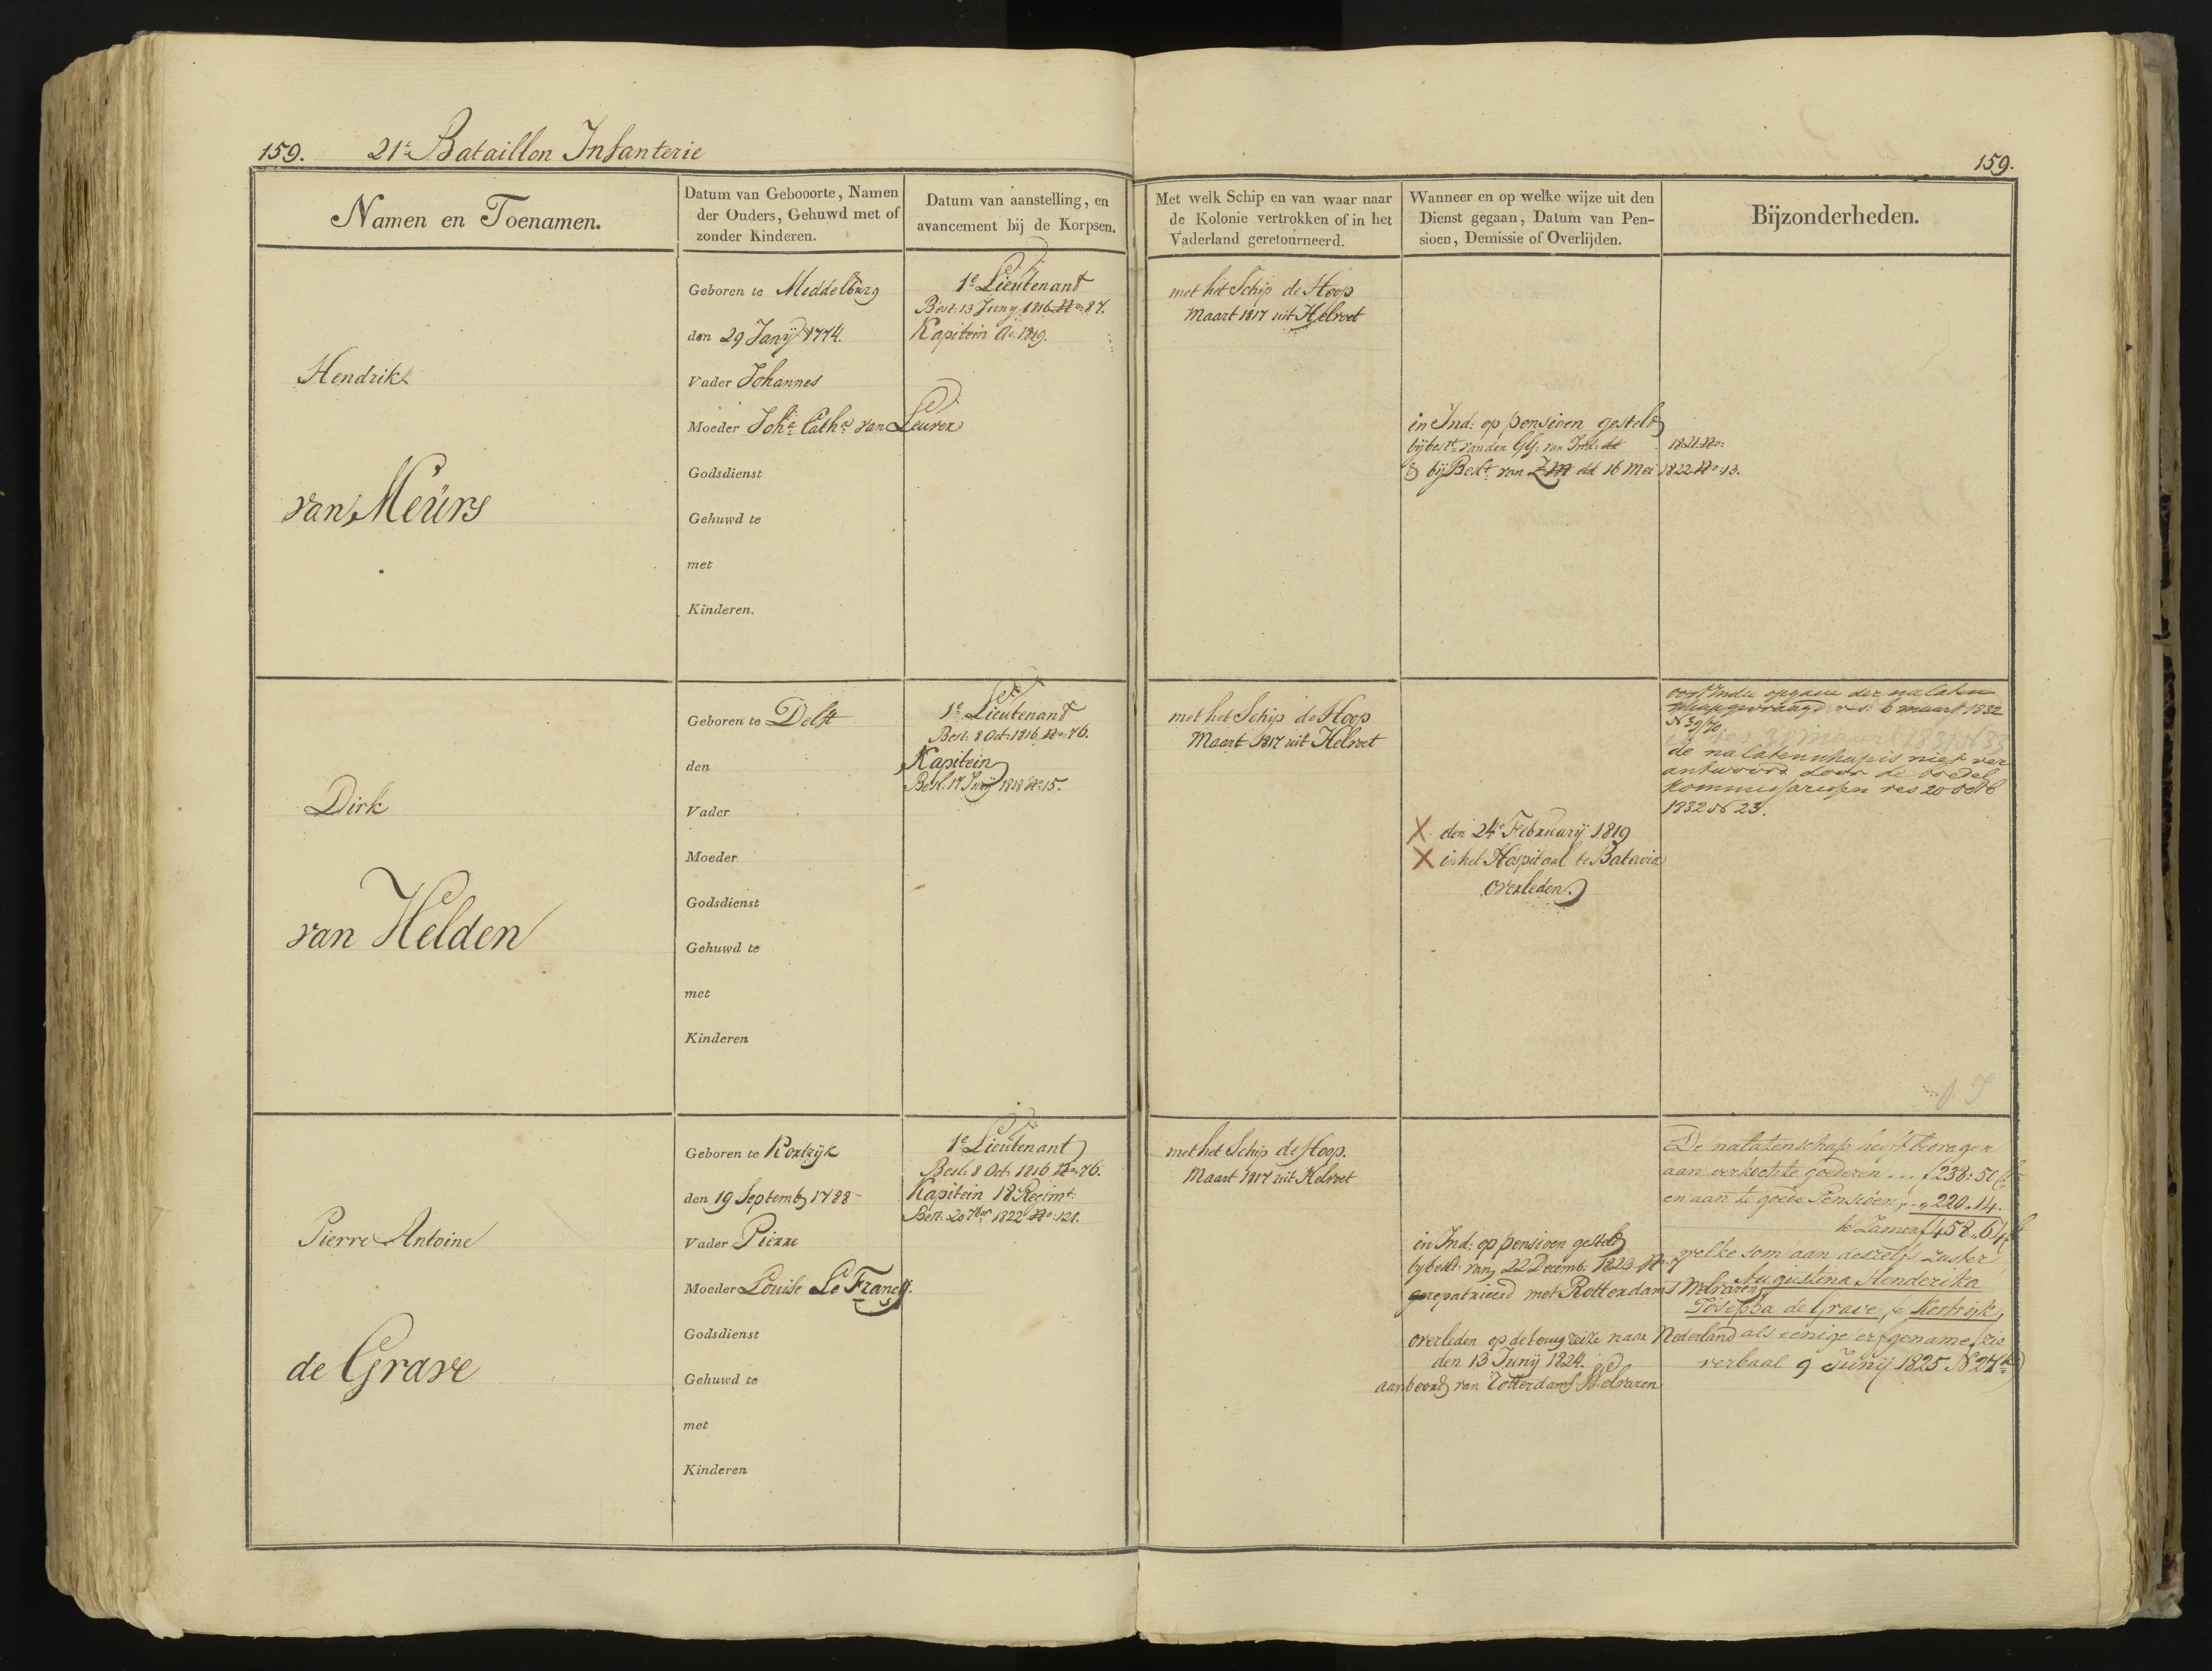 159. 21e Bataillon Infanterie
159.
Namen en Toenamen.
Datum van Gebooorte, Namen
der Ouders, Gehuwd met of
zonder Kinderen.
Datum van aanstelling, en
avancement bij de Korpsen.
Met welk Schip en van waar naar
de Kolonie vertrokken of in het
Vaderland geretourneerd.
Wanneer en op welke wijze uit den
Dienst gegaan, Datum van Pen-
sioen, Demissie of Overlijden.
Bijzonderheden.
Hendrik
van Meürs
Geboren te Middelburg
den 29 Janij 1774.
Vader Johannes
Moeder Joha Catha van Leuren
Godsdienst
Gehuwd te
met
Kinderen.
1e Lieutenant
Besl: 13 Juny 1816 No: 87.
Kapitein Ao 1819.
met het Schip de Hoop
Maart 1817 uit Helvoet
in Ind: op pensioen gesteld
bij beslt van den GG: van Ind: dd 1821 No:
& bij Beslt van ZM dd 16 Mei 1822 No: 13.
Dirk
van Helden
Geboren te Delft
den
Vader
Moeder
Godsdienst
Gehuwd te
met
Kinderen
1e Lieutenant
Besl: 8 Oct: 1816 No: 76.
Kapitein
Besl. 17 1818 No: 15.
met het Schip de Hoop
Maart 1817 uit Helvoet
X den 24e Februarij 1819
X in het Hospitaal te Batavia
overleden.
oost Indie opgave der nalaten
schap gevraagd res: 6 maart 1832
N 39/70.
de nalatenschap is niet ver
antwoord door de boedel
kommissarissen res 20 octb
1832 N 23.
Pierre Antoine
de Grave
Geboren te Kortrijk
den 19 Septemb 1788
Vader Pierre
Moeder Louise Le Francq.
Godsdienst
Gehuwd te
met
Kinderen
1e Lieutenant
Besl. 8 Oct: 1816 No: 76.
Kapitein 18 Regimt:
Besl. 20 7ber 1822 No: 121.
met het Schip de Hoop.
Maart 1817 uit Helvoet
in Ind: op pensioen gesteld
bij beslt: van 22 Decemb: 1823 No: 7
gerepatrieerd met Rotterdams Welvaren
overleden op de terug reize naar Nederland
den 13 Junij 1824.
aan boord van Rotterdams Welvaren
De nalatenschap heeft bedragen
aan verkochte goederen ... f 238:50
en aan te goede Pensioen " 220.14.
te Zamen f 458.64
welke som aan deszelfs zuster
Augustina Henderika
Josepha de Grave, te Kortrijk,
als eenige erfgename (zie
verbaal 9 Junij 1825 N 27